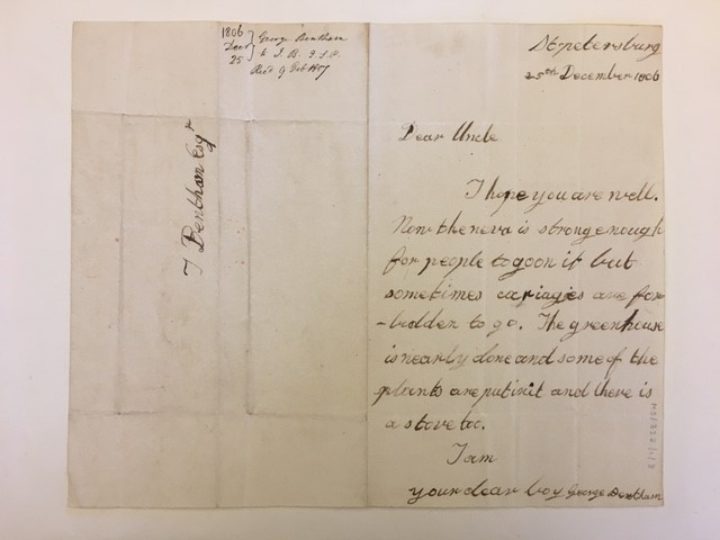 1806
Decr
25
George Bentham
to J. B. J. S. P.
Recd 9 Feb 1807
J Bentham Esqr
St petersburg
25th December 1806
Dear Uncle
I hope you are well.
Now the neva is strong enough
for people to go on it but
sometimes cariages are for
-bidden to go. The greenhouse
is nearly done and some of the
plants are put in it and there is
a stove too.
I am
your dear boy George Bentham